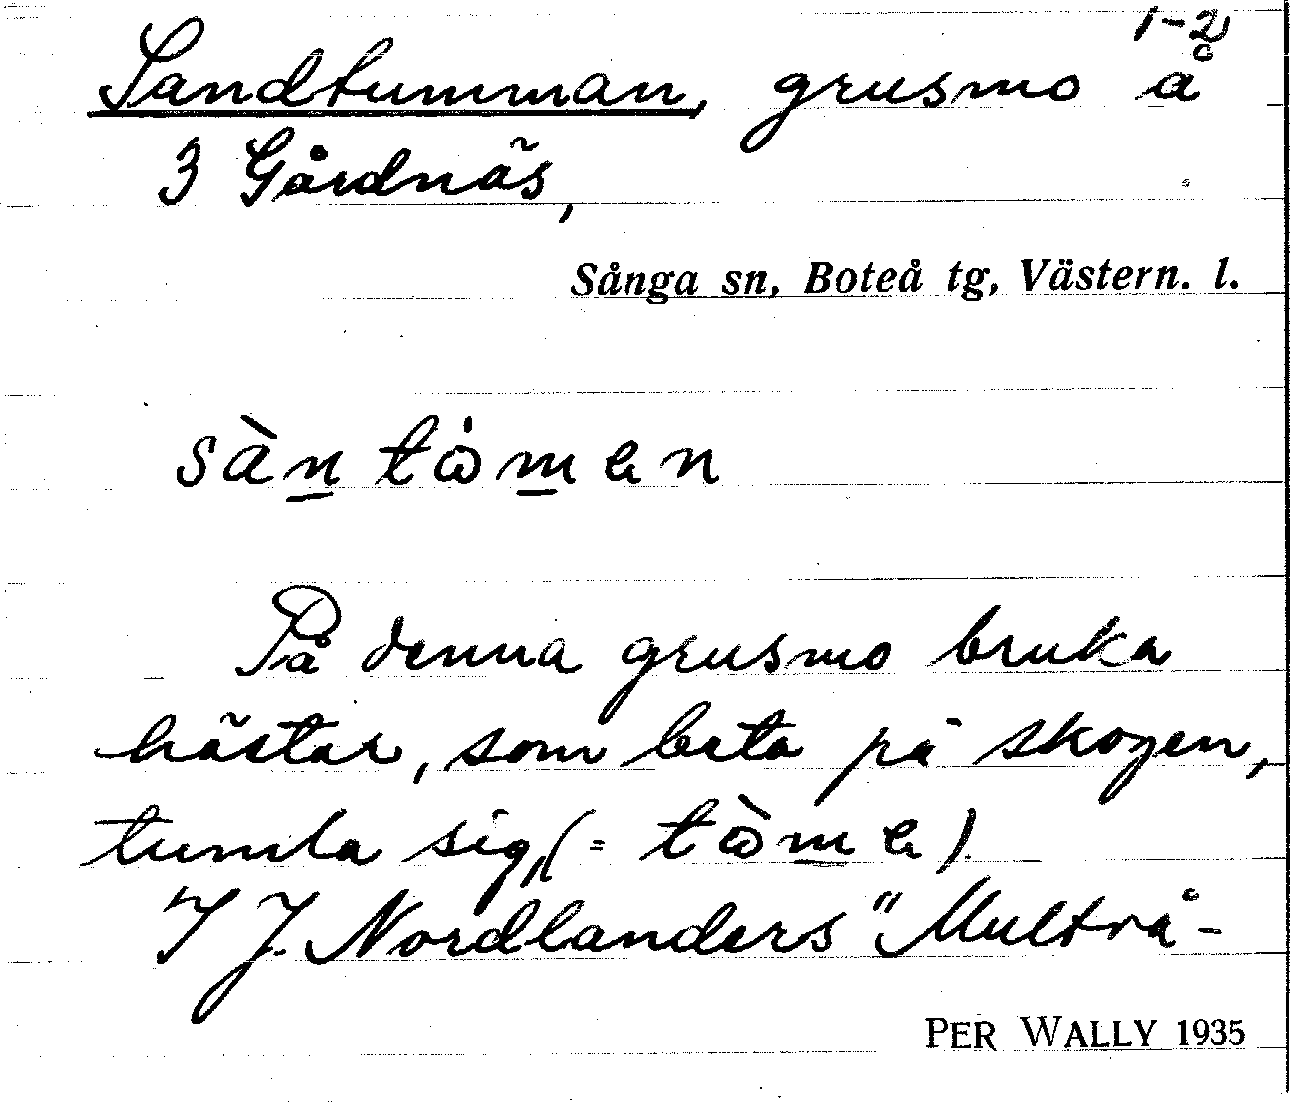 1-2
Sandtumman, grusmo å
3 Gårdnäs,
Sånga sn, Boteå tg, Västern. l.
På denna grusmo bruka
hästar, som beta på skogen,
tumla sig, (=
I J. Nordlanders "Multrå-
PER WALLY 1935